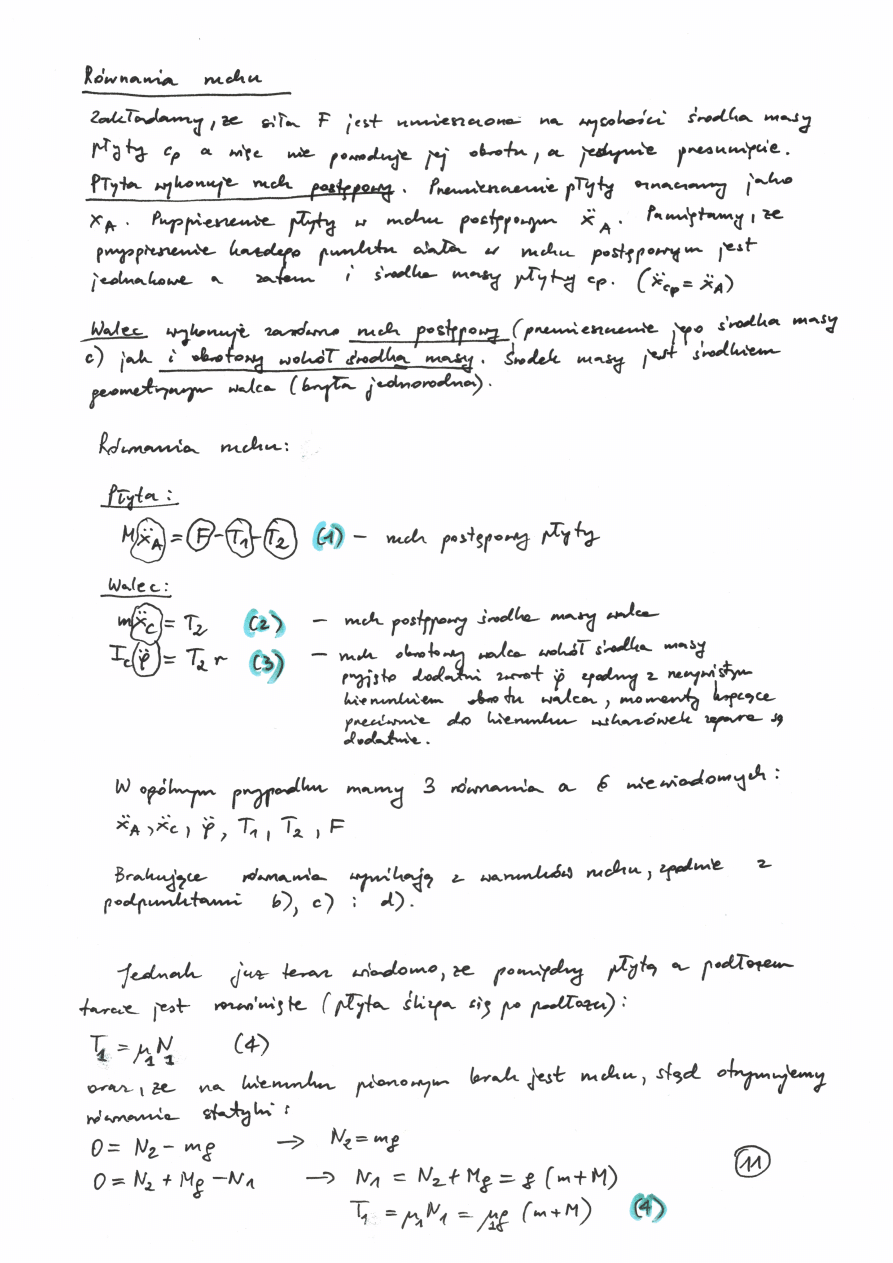 Równania ruchu
Zakładamy, że siła F jest umieszczona na wysokości środka masy
płyty cp a więc nie powoduje jej obrotu, a jedynie przesunięcie.
Płyta wykonuje ruch postępowy. Przemieszczenie płyty oznaczamy jako
x_A. Przyspieszenie płyty w ruchu postępowym ẍ_A. Pamiętamy, że
przyspieszenie każdego punktu ciała w ruchu postępowym jest
jednakowe a zatem i środka masy płyty cp. (ẍ_cp = ẍ_A)
Walec wykonuje zarówno ruch postępowy (przemieszczenie jego środka masy
c) jak i obrotowy wokół środka masy. Środek masy jest środkiem
geometrycznym walca (bryła jednorodna).
Równania ruchu:
Płyta:
Mẍ_A = F - T_1 - T_2 (1) – ruch postępowy płyty
Walec:
mẍ_c = T_2 (2) – ruch postępowy środka masy walca
I_c φ̈ = T_2 r (3) – ruch obrotowy walca wokół środka masy
przyjęto dodatni zwrot φ̈ zgodny z rzeczywistym
kierunkiem obrotu walca, momenty kręcące
przeciwnie do kierunku wskazówek zegara są
dodatnie.
W ogólnym przypadku mamy 3 równania a 6 niewiadomych:
ẍ_A, ẍ_c, φ̈, T_1, T_2, F
Brakujące równania wynikają z warunków ruchu, zgodnie z
podpunktami b), c) i d).
Jednak już teraz wiadomo, że pomiędzy płytą a podłożem
tarcie jest rozwinięte (płyta ślizga się po podłożu):
T_1 = μ_1 N_1 (4)
oraz, że na kierunku pionowym brak jest ruchu, stąd otrzymujemy
równania statyki:
0 = N_2 - mg → N_2 = mg
0 = N_2 + Mg - N_1 → N_1 = N_2 + Mg = g (m+M)
T_1 = μ_1 N_1 = μ_1 g (m+M) (4)
11